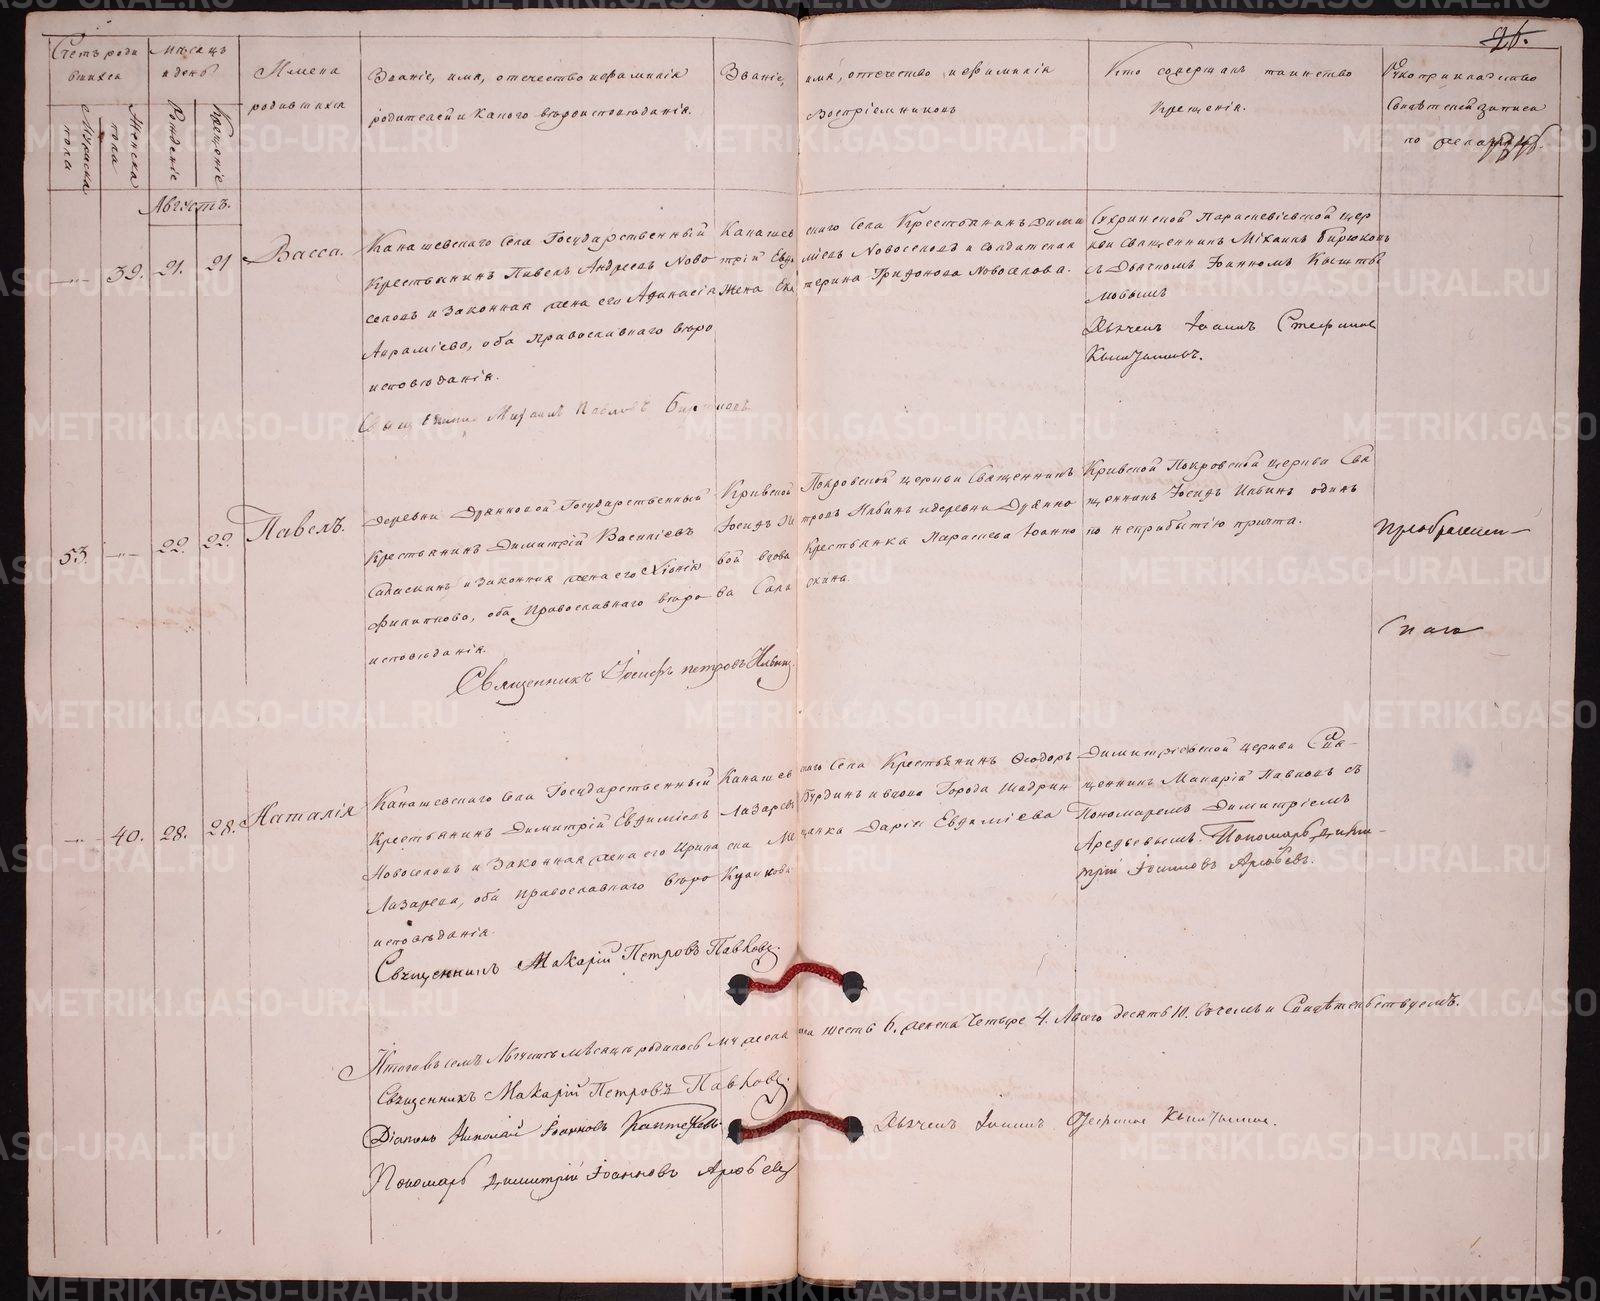 26.
Счетъ роди
вшихся
Мѣсяцъ
и день
Имена
родившихся
Званіе, имя, отечество и фамилія
родителей и какого вѣроисповѣданія.
Званіе, имя, отечество и фамилія
воспріемниковъ
Кто совершалъ таинство
крещенія.
Рукоприкладство
свидѣтелей записи
по желанію
Мужска
пола
Женска
пола
Рожденіе
Крещеніе
Августъ.
39. 21. 21
Васса.
Канашевскаго Села Государственный
Крестьянинъ Павелъ Андреевъ Ново
селовъ и Законная жена его Афанасія
Авраміева, оба Православнаго вѣро
исповѣданія.
Священникъ Михаилъ Павловъ Бирюковъ
Канашевскаго Села Крестьянинъ Дими
трій Евдиміевъ Новоселовъ и Солдатская
жена Екатерина Трифонова Новоселова.
Сухринской Параскевіевской цер
кви Священникъ Михаилъ Бирюковъ
съ Дьячкомъ Іоанномъ Кышты
мовымъ
Дьячекъ Іоаннъ Стефановъ
Кыштымовъ.
53. 22. 22.
Павелъ.
Деревни Дрянновой Государственный
Крестьянинъ Димитрій Василіевъ
Салаткинъ и Законная жена его Хіонія
Филиппова, оба Православнаго вѣро
исповѣданія.
Священникъ Іосифъ Петровъ Ильинъ
Кривской Покровской церкви Священникъ
Іосифъ Петровъ Ильинъ и деревни Дрянно
вой вдова Крестьянка Параскева Іоанно
ва
Кривской Покровской церкви Свя
щенникъ Іосифъ Ильинъ одинъ
по неприбытію причта.
Преображен-
скаго
40. 28. 28.
Наталія
Канашевскаго Села Государственный
Крестьянинъ Димитрій Евдиміевъ
Новоселовъ и Законная жена его Ирина
Лазарева, оба Православнаго вѣро
исповѣданія.
Священникъ Макарій Петровъ Павловъ.
Канашевскаго Села Крестьянинъ Ѳеодоръ
Лазаревъ Бурдинъ и вдова Города Шадрин
ска Мѣщанка Дарія Евдиміева
Куликова
Димитріевской церкви Свя-
щенникъ Макарій Павловъ съ
Пономаремъ Димитріемъ
Арефьевымъ. Пономарь Дими-
трій Іоанновъ Арефьевъ.
Итого въ семъ Августѣ мѣсяцѣ родилось мужеска пола шесть 6. женска Четыре 4. А всего десять 10. въ чемъ и Свидѣтельствуемъ.
Священникъ Макарій Петровъ Павловъ.
Діаконъ Николай Іоанновъ
Дьячекъ Іоаннъ Стефановъ Кыштымовъ.
Пономарь Димитрій Іоанновъ Арефьевъ
METRIKI.GASO-URAL.RU